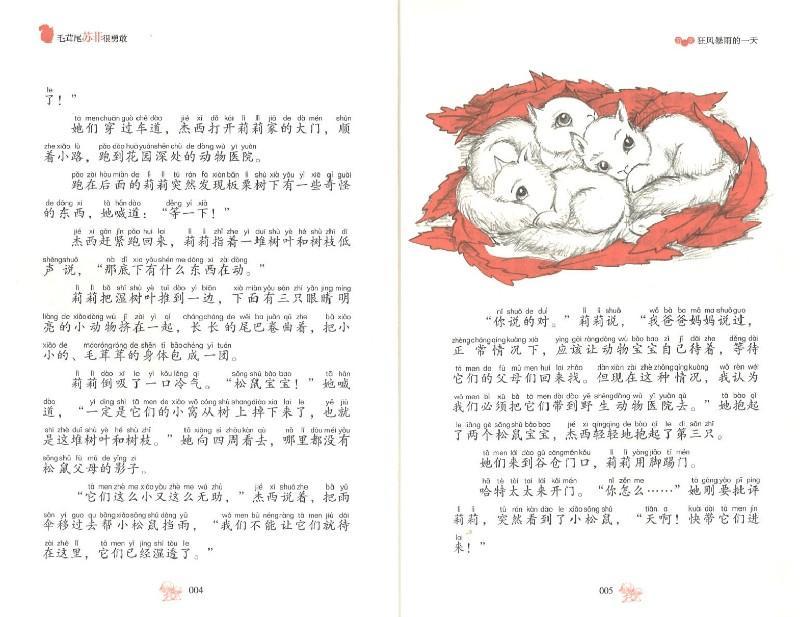 毛茸尾苏菲很勇敢
le
了！”
tā men chuān guò chē dào jié xī dǎ kāi lì lì jiā de dà mén shùn
她们穿过车道，杰西打开莉莉家的大门，顺
zhe xiǎo lù pǎo dào huā yuán shēn chù de dòng wù yī yuàn
着小路，跑到花园深处的动物医院。
pǎo zài hòu miàn de lì lì tū rán fā xiàn bǎn lì shù xià yǒu yì xiē qí guài
跑在后面的莉莉突然发现板栗树下有一些奇怪
de dōng xi tā hǎn dào děng yí xià
的东西，她喊道：“等一下！”
jié xī gǎn jǐn pǎo huí lai lì lì zhǐ zhe yì duī shù yè hé shù zhī dī
杰西赶紧跑回来，莉莉指着一堆树叶和树枝低
shēng shuō nà dǐ xià yǒu shén me dōng xi zài dòng
声说，“那底下有什么东西在动。”
lì lì bǎ shī shù yè tuī dào yì biān xià miàn yǒu sān zhī yǎn jing míng
莉莉把湿树叶推到一边，下面有三只眼睛明
liàng de xiǎo dòng wù jǐ zài yì qǐ cháng cháng de wěi ba juǎn qū zhe bǎ xiǎo
亮的小动物挤在一起，长长的尾巴卷曲着，把小
xiǎo de máo róng róng de shēn tǐ bāo chéng yì tuán
小的、毛茸茸的身体包成一团。
lì lì dào xī le yì kǒu lěng qì sōng shǔ bǎo bao tā hǎn
莉莉倒吸了一口冷气。“松鼠宝宝！”她喊
dào yí dìng shì tā men de xiǎo wō cóng shù shang diào xia lai le yě jiù
道，“一定是它们的小窝从树上掉下来了，也就
shì zhè duī shù yè hé shù zhī tā xiàng sì zhōu kàn qù nǎ lǐ dōu méi yǒu
是这堆树叶和树枝。”她向四周看去，哪里都没有
sōng shǔ fù mǔ de yǐng zi
松鼠父母的影子。
tā men zhè me xiǎo yòu zhè me wú zhù jié xī shuō zhe bǎ yǔ
“它们这么小又这么无助，”杰西说着，把雨
sǎn yí guo qu bāng xiǎo sōng shǔ dǎng yǔ wǒ men bù néng ràng tā men jiù dāi
伞移过去帮小松鼠挡雨，“我们不能让它们就待
zài zhè lǐ tā men yǐ jīng shī tòu le
在这里，它们已经湿透了。”
004
狂风暴雨的一天
nǐ shuō de duì lì lì shuō wǒ bà ba mā ma shuō guo
“你说的对。”莉莉说，“我爸爸妈妈说过，
zhèng cháng qíng kuàng xià yīng gāi ràng dòng wù bǎo bao zì jǐ dāi zhe děng dài
正常情况下，应该让动物宝宝自己待着，等待
tā men de fù mǔ men huí lai zhǎo dàn xiàn zài zhè zhǒng qíng kuàng wǒ rèn wéi
它们的父母们回来找。但现在这种情况，我认为
wǒ men bì xū bǎ tā men dài dào yě shēng dòng wù yī yuàn qù tā bào qǐ
我们必须把它们带到野生动物医院去。”她抱起
le liǎng gè sōng shǔ bǎo bao jié xī qīng qīng de bào qǐ le dì sān zhī
了两个松鼠宝宝，杰西轻轻地抱起了第三只。
tā men lái dào gǔ cāng mén kǒu lì lì yòng jiǎo tī mén
她们来到谷仓门口，莉莉用脚踢门。
hā tè tài tai lái kāi mén nǐ zěn me tā gāng yào pī píng
哈特太太来开门。“你怎么……”她刚要批评
lì lì tū rán kàn dào le xiǎo sōng shǔ tiān a kuài dài tā men jìn
莉莉，突然看到了小松鼠，“天啊！快带它们进
lai
来！”
005